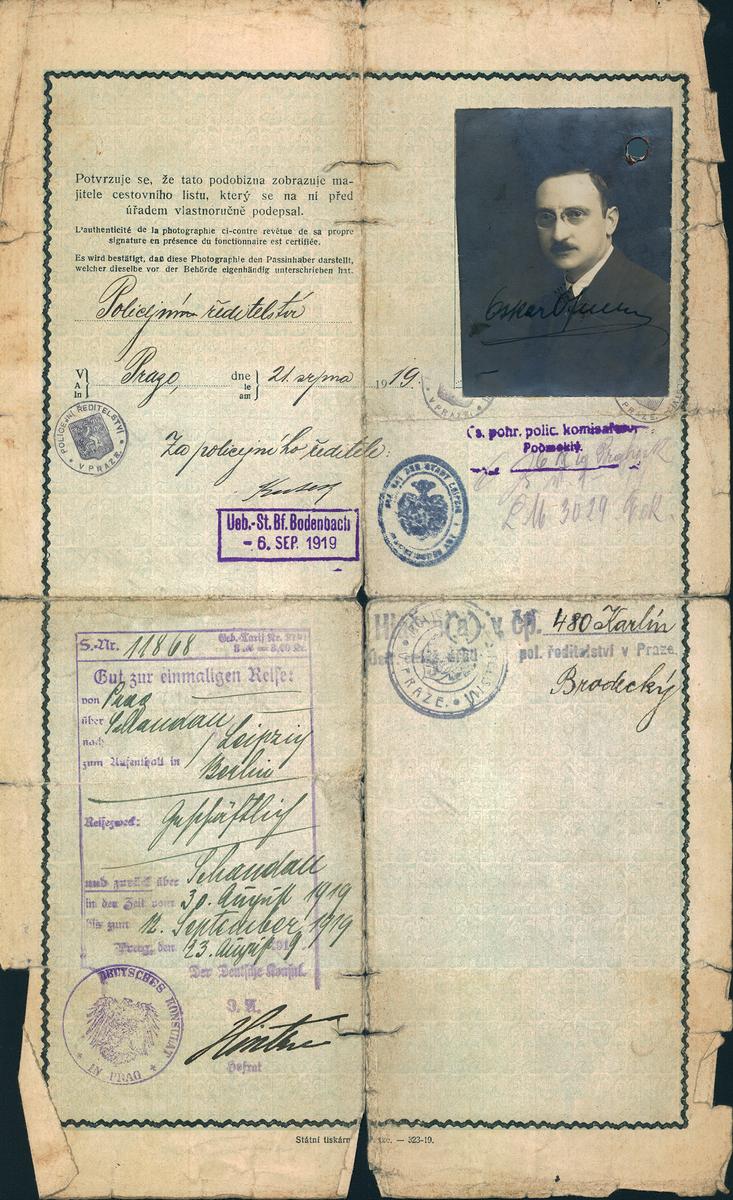 Potvrzuje se, že tato podobizna zobrazuje ma-
jitele cestovního listu, který se na ní před
úřadem vlastnoručně podepsal.
L'authenticité de la photographie ci-contre revêtue de sa propre
signature en présence du fonctionnaire est certifiée.
Es wird bestätigt, daß diese Photographie den Passinhaber darstellt,
welcher dieselbe vor der Behörde eigenhändig unterschrieben hat.
Oskar
Policejním ředitelství
V
A
In
Praze,
dne
le
am
21. srpna
1919.
POLICEJNÍ ŘEDITELSTVÍ
V PRAZE.
V PRAZE.
Za policejního ředitele:
Čs. pohr. polic. komisařství
Podmokly.
Ueb.-St. Bf. Bodenbach
- 6. SEP. 1919
DER RAT DER STADT LEIPZIG
LM 3029
S.-Nr. 11868
Geb.-Tarif Nr.
Gut zur einmaligen Reise:
von Prag
über Schandau
nach / Leipzig
zum Aufenthalt in Berlin
Reisezweck: Geschäftlich
und zurück über Schandau
in der Zeit vom 30. August 1919
bis zum 12. September 1919
Prag, den 23. August 1919.
Der Deutsche Konsul.
I. A.
Hofrat
DEUTSCHES KONSULAT
IN PRAG
v čp. 480 Karlín
pol. ředitelství v Praze.
Brodecký
PRAZE.
Státní tiskárn
aze. — 323-19.